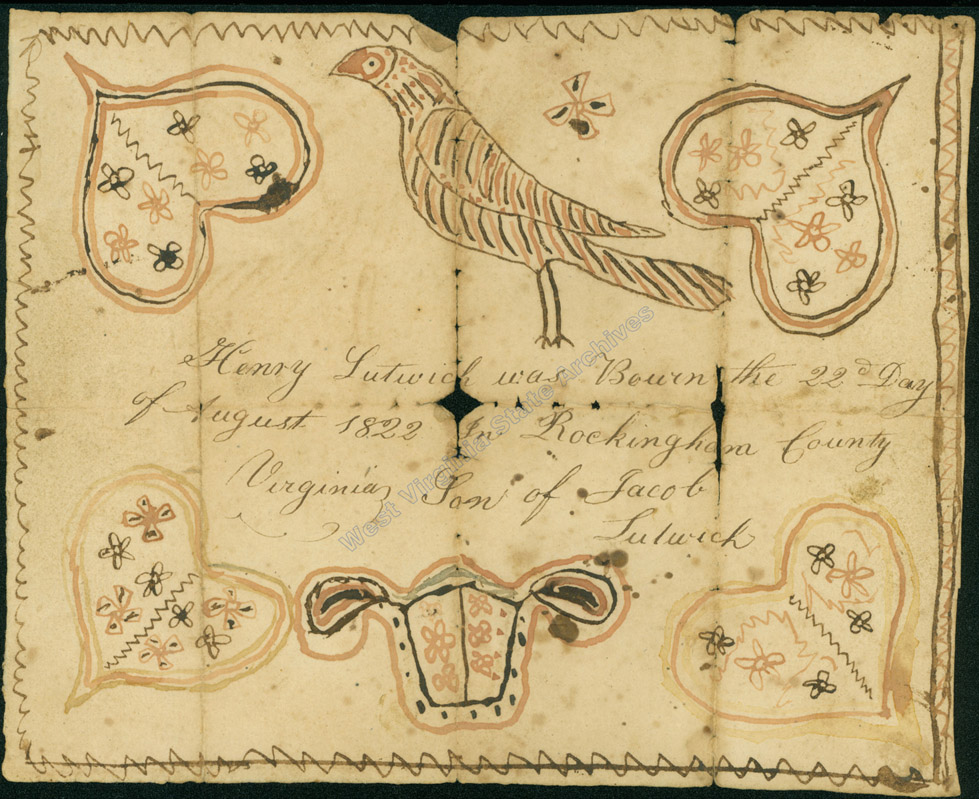 Henry Lutwick was Bourn the 22d Day
of August 1822 In Rockingham County
Virginia Son of Jacob
Lutwick
West Virginia State Archives